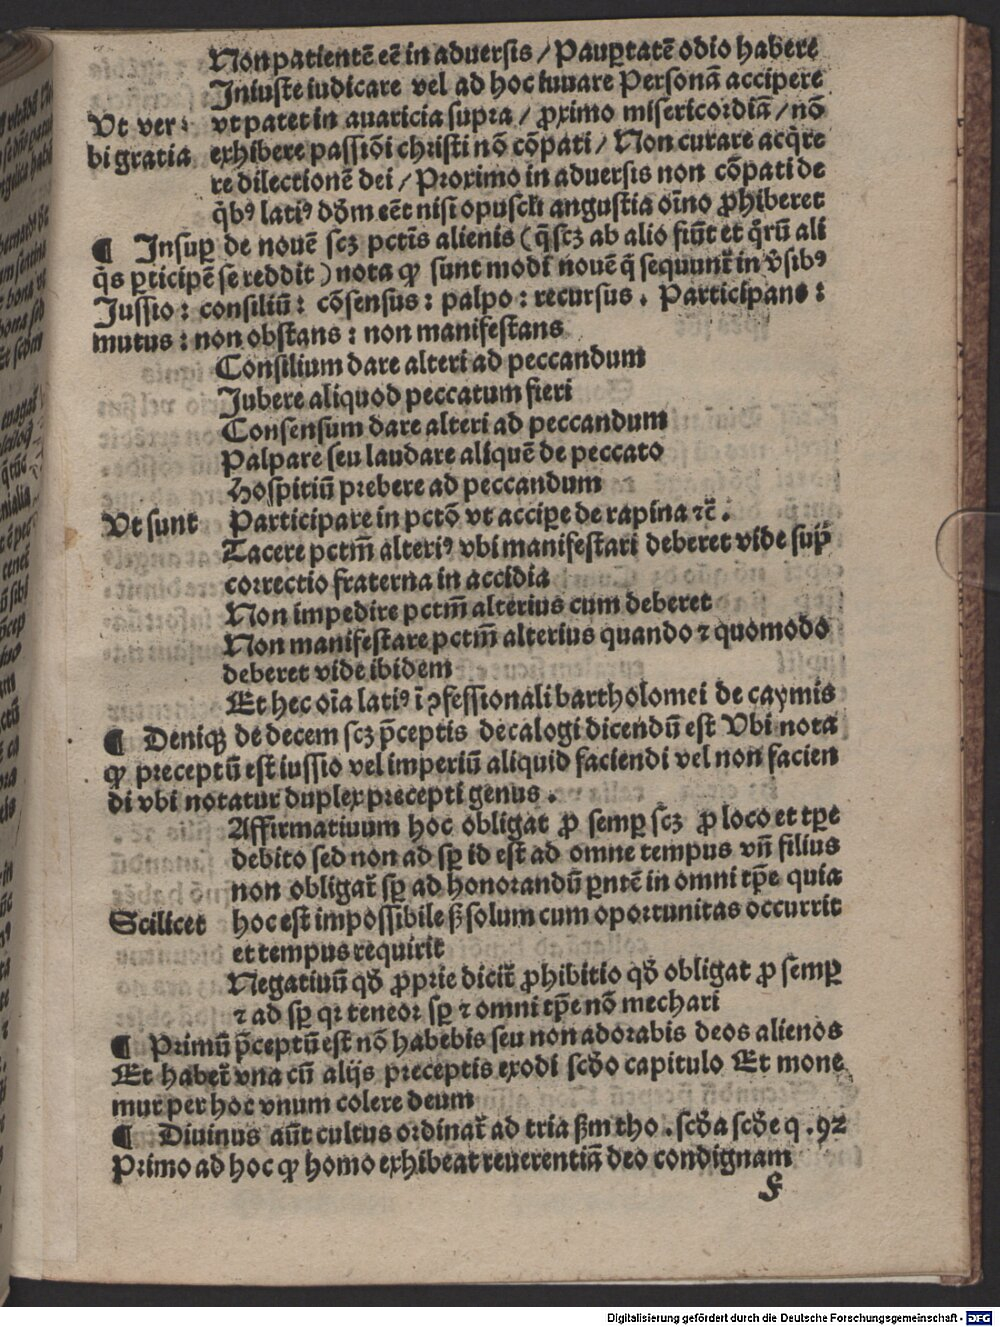 Non patientē eē in aduersis / Pauꝑtatē odio habere
Iniuste iudicare vel ad hoc iuuare Personā accipere
Vt ver⸗ vt patet in auaricia supra / ꝓximo misericordiā / nō
bi gratia exhibere passiōi christi nō cōpati / Non curare acq̄re
re dilectionē dei / Proximo in aduersis non cōpati de
q̄bꝰ latiꝰ dōm eēt nisi opuscli angustia oīno ꝓhiberet
¶ Insuꝑ de nouē scꝫ pctīs alienis (q̄ scꝫ ab alio fiūt et q̄rū ali
q̄s ꝑticipē se reddit) nota ꝙ sunt modi nouē q̄ sequunt̄ in v̄sibꝰ
Iussio : consiliū : cōsensus : palpo : recursus . Participans :
mutus : non obstans : non manifestans
Consilium dare alteri ad peccandum
Iubere aliquod peccatum fieri
Consensum dare alteri ad peccandum
Palpare seu laudare aliquē de peccato
Hospitiū prebere ad peccandum
Vt sunt Participare in pctō vt acciꝑe de rapina ⁊c̄ .
Tacere pctm̄ alteriꝰ vbi manifestari deberet vide sup̄
correctio fraterna in accidia
Non impedire pctm̄ alterius cum deberet
Non manifestare pctm̄ alterius quando ⁊ quomodo
deberet vide ibidem
Et hec oīa latiꝰ ī ꝯfessionali bartholomei de caymis
¶ Deniqꝫ de decem scꝫ p̄ceptis decalogi dicendū est Vbi nota
ꝙ preceptū est iussio vel imperiū aliquid faciendi vel non facien
di vbi notatur duplex precepti genus .
Affirmatiuum hoc obligat ꝓ semꝑ scꝫ ꝓ loco et tꝑe
debito sed non ad sꝑ id est ad omne tempus vn̄ filius
non obligat̄ sꝑ ad honorandū ꝑntē in omni tp̄e quia
Scilicet hoc est impossibile sꝫ solum cum oportunitas occurrit
et tempus requirit
Negatiuū qđ ꝓprie dicit̄ ꝓhibitio qđ obligat ꝓ semꝑ
⁊ ad sꝑ qr teneor sꝑ ⁊ omni tp̄e nō mechari
¶ Primū p̄ceptū est nō habebis seu non adorabis deos alienos
Et habet̄ vna cū alijs preceptis exodi scđo capitulo Et mone
mur per hoc vnum colere deum
¶ Diuinus aūt cultus ordinat̄ ad tria ẜm tho . scđa scđe q . 92
Primo ad hoc ꝙ homo exhibeat reuerentiā deo condignam
f
Digitalisierung gefördert durch die Deutsche Forschungsgemeinschaft - DFG